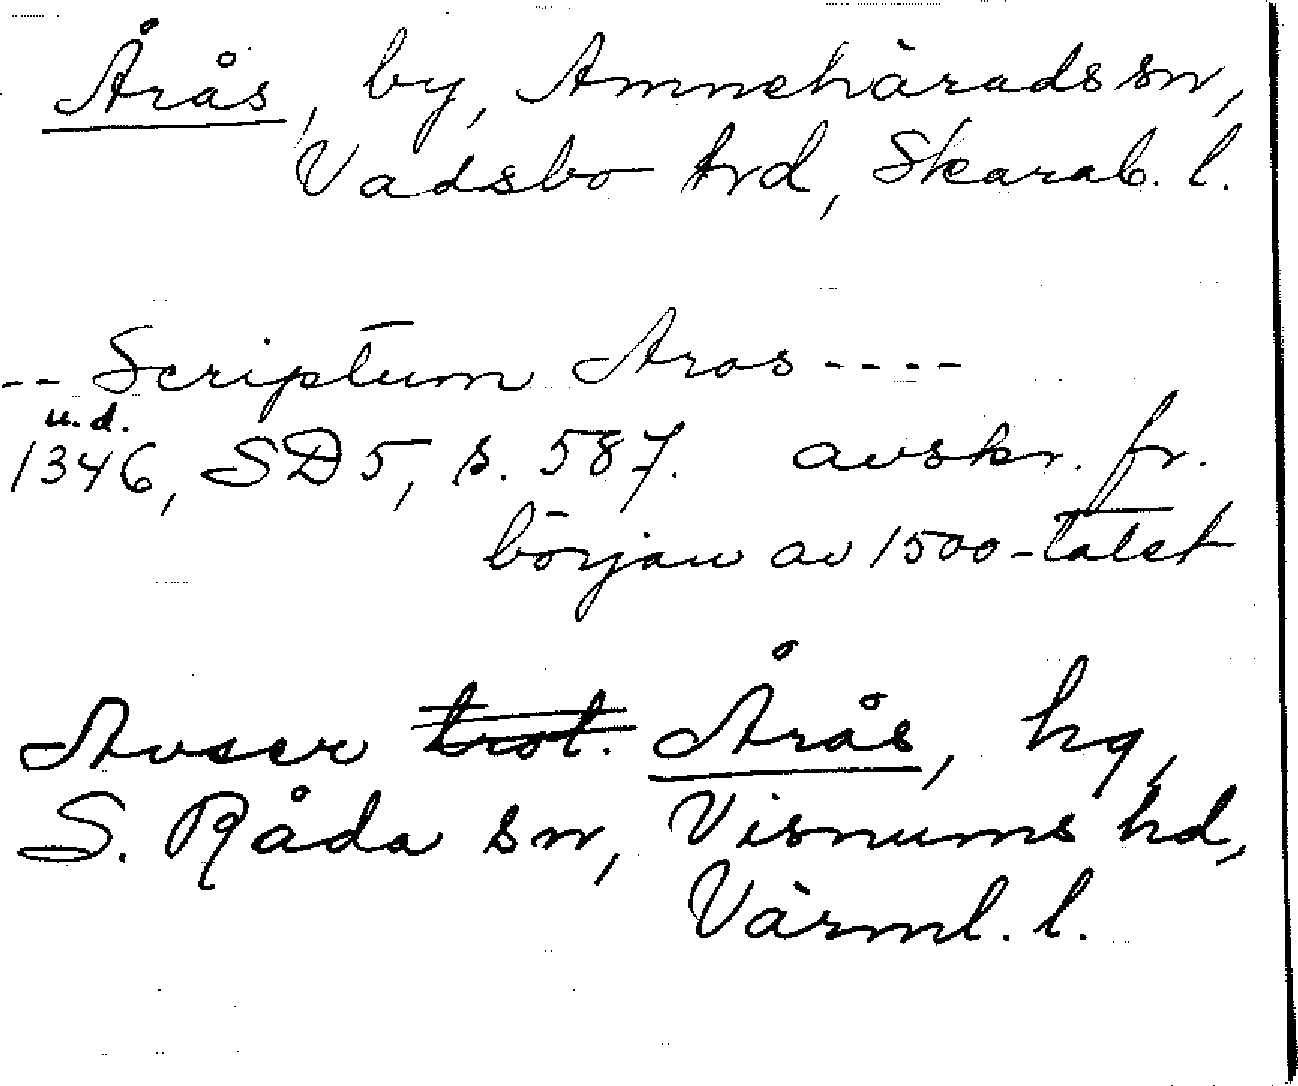 Årås, by, Amnehärads sn,
Vadsbo hrd, Skarab. l.
-- Scriptum Aros ----
u.d.
1346, SD 5, s. 587. avskr. fr.
början av 1500-talet
Avser trol. Årås, hg,
S. Råda sn, Visnums hd,
Värml. l.